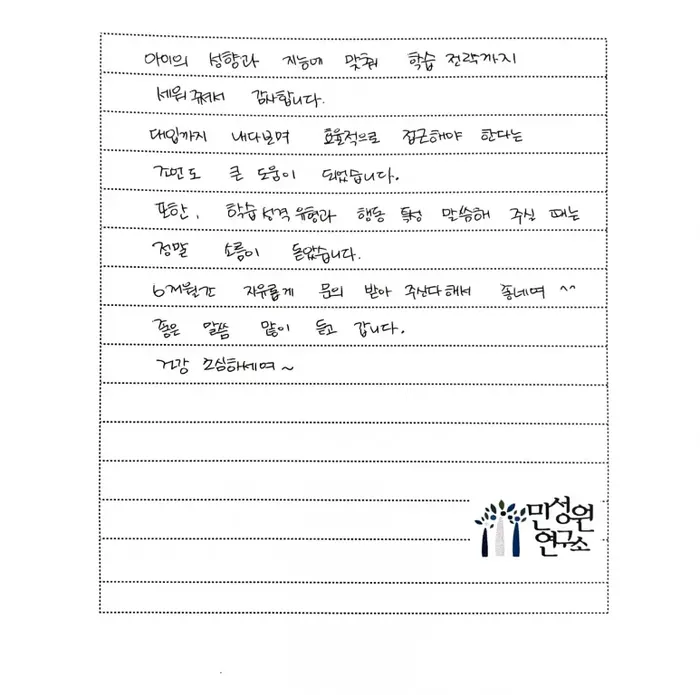 아이의 성향과 지능에 맞춰 학습 전략까지
세워 주셔서 감사합니다.
대입까지 내다보며 효율적으로 접근해야 한다는
조언도 큰 도움이 되었습니다.
또한, 학습 성격 유형과 행동 특성 말씀해 주실 때는
정말 소름이 돋았습니다.
6개월간 자유롭게 문의 받아 주신다해서 좋네여 ^^
좋은 말씀 많이 듣고 갑니다.
건강 조심하세여~
민성원
연구소